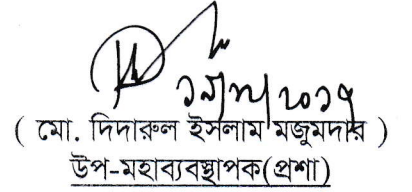 ( মো. দিদারুল ইসলাম মজুমদার )
উপ-মহাব্যবস্থাপক(প্রশা)